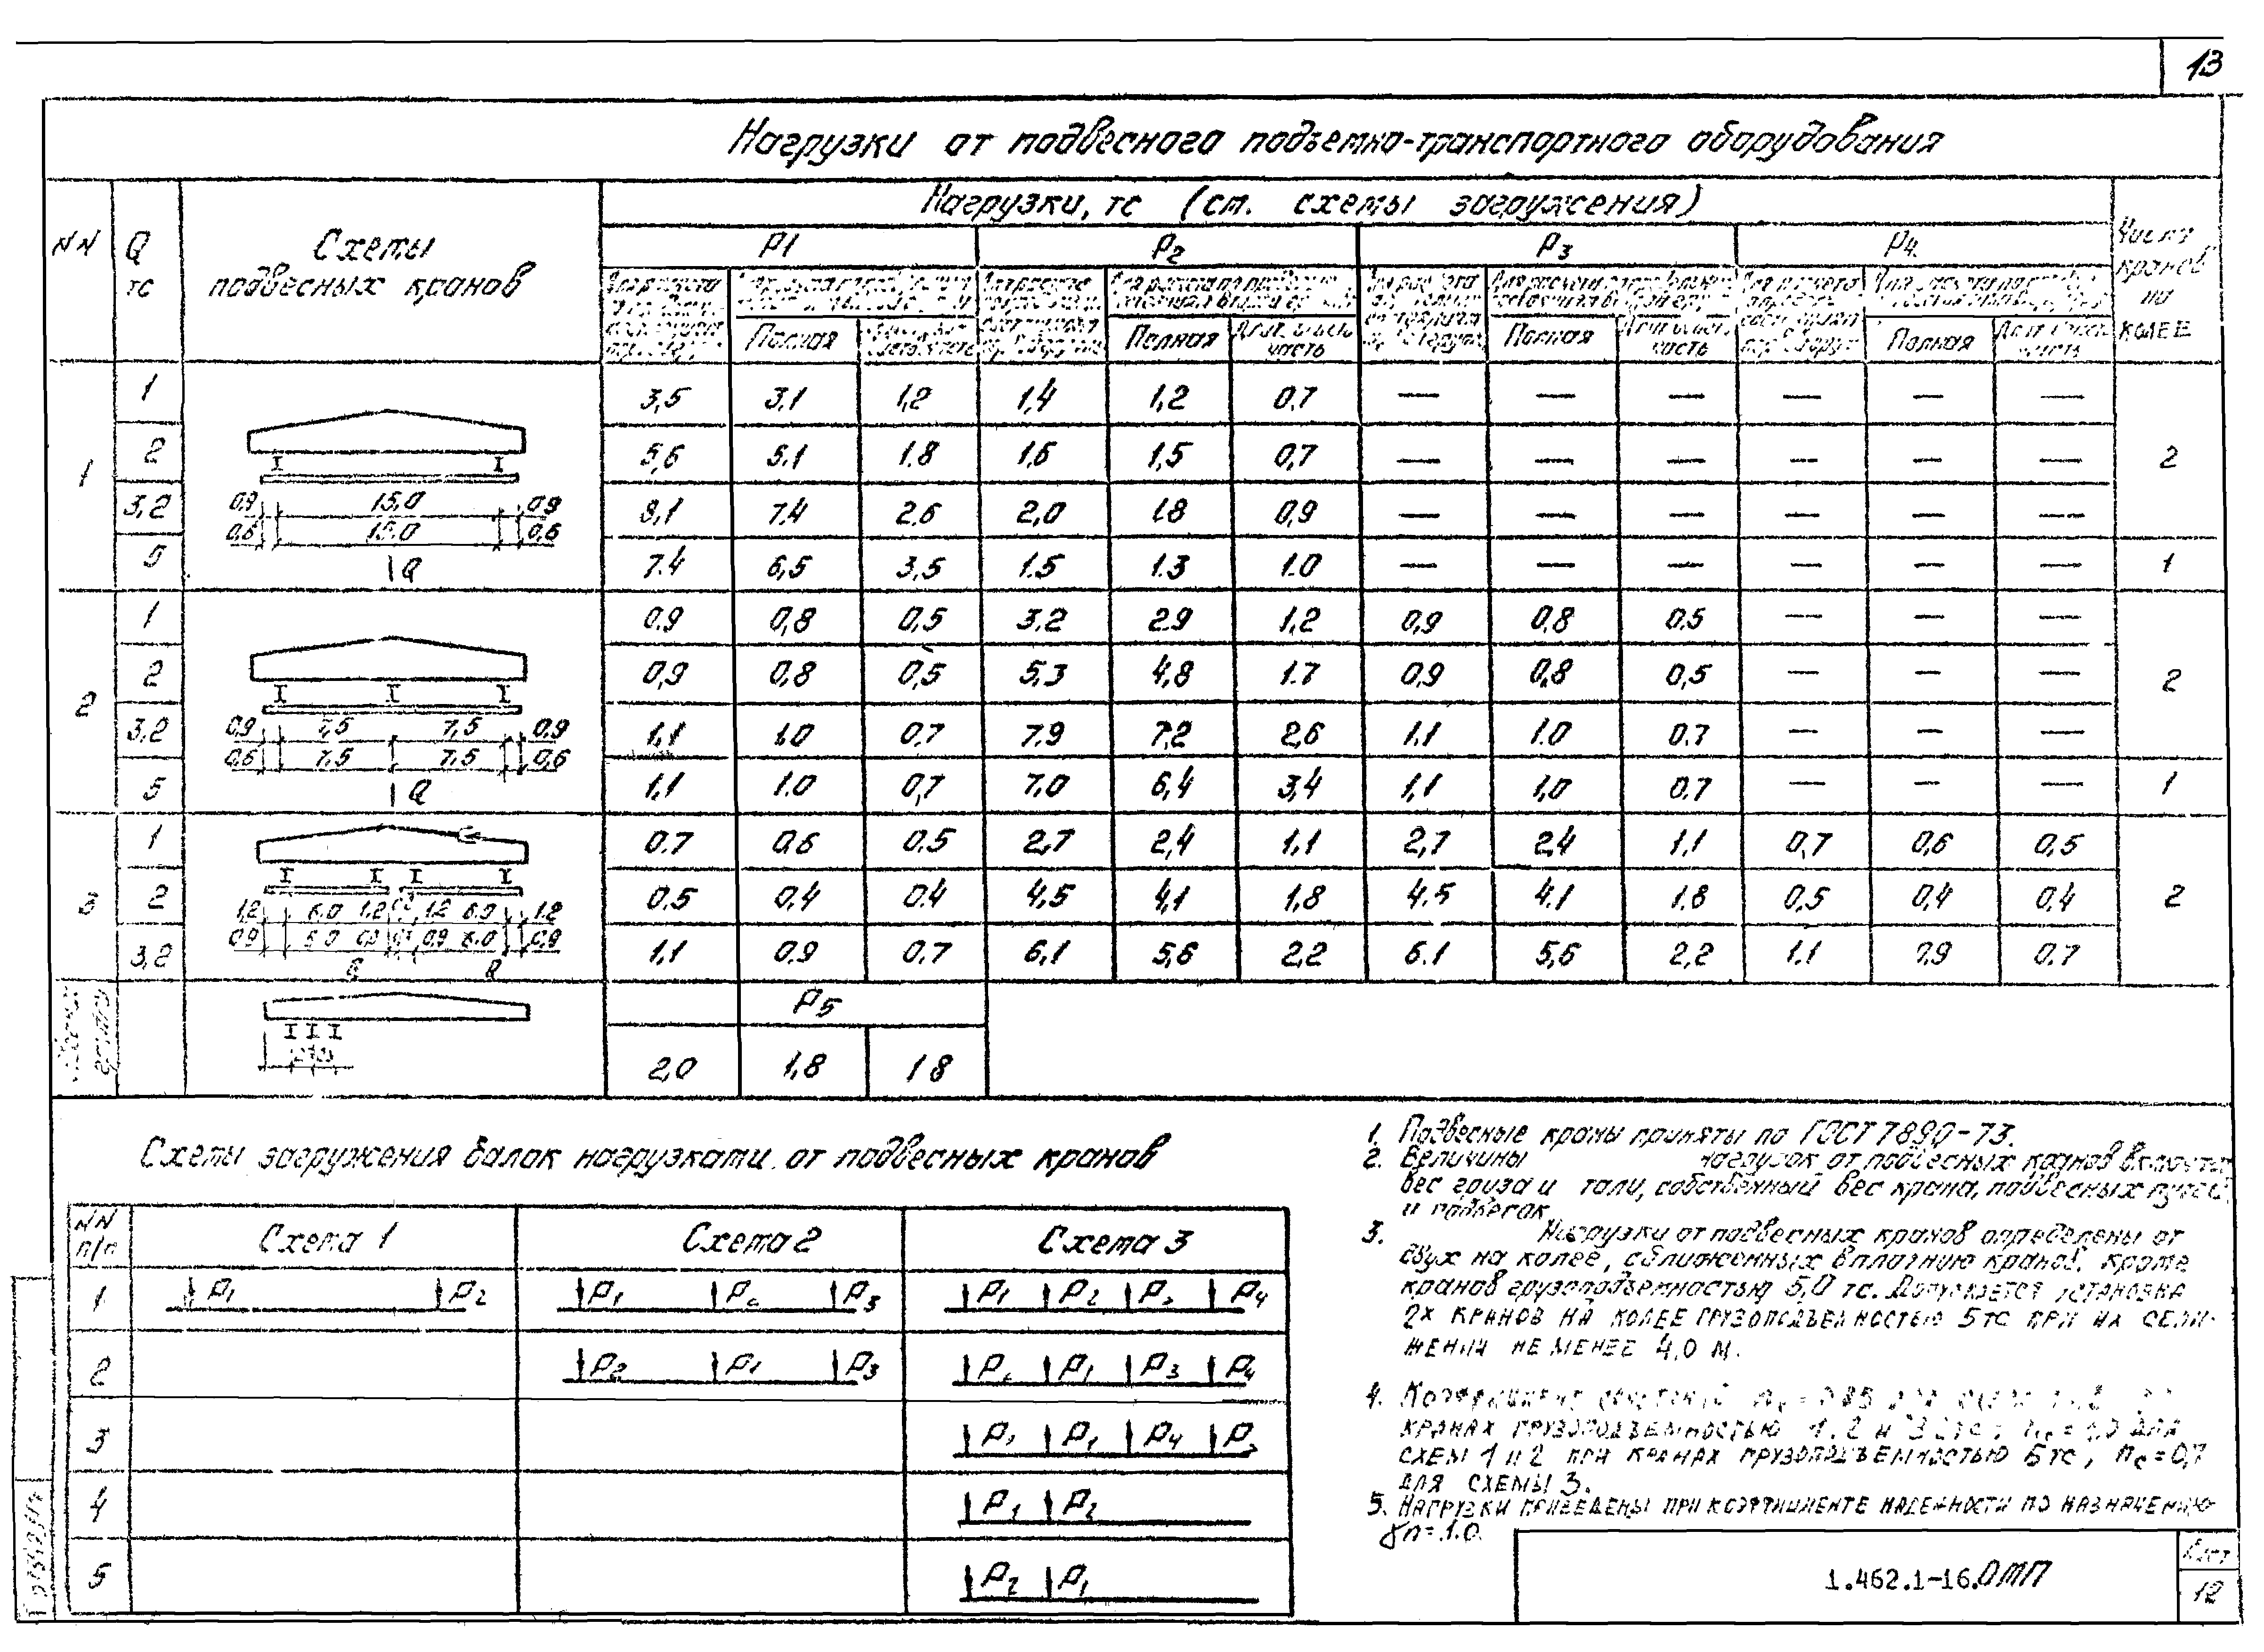 13
Нагрузки от подвесного подъемно-транспортного оборудования
NN Q тс Схемы подвесных кранов Нагрузки, тс (см. схемы загружения) Число кранов на колее
P1 P2 P3 P4
Полная Полная часть Полная часть Полная часть
1 1 3,5 3,1 1,2 1,4 1,2 0,7 — — — — — — 2
2 5,6 5.1 1.8 1,6 1,5 0,7 — — — — — —
3,2 8,1 7.4 2.6 2,0 1.8 0,9 — — — — — —
5 7.4 6,5 3,5 1.5 1.3 1.0 — — — — — — 1
0.9 15,0 0.9
0.6 15.0 0.6
Q
2 1 0.9 0,8 0,5 3.2 2.9 1,2 0,9 0.8 0.5 — — — 2
2 0,9 0,8 0,5 5,3 4,8 1.7 0,9 0,8 0,5 — — —
3,2 1,1 1.0 0.7 7.9 7,2 2,6 1.1 1.0 0.7 — — —
5 1,1 1.0 0,7 7,0 6,4 3,4 1,1 1,0 0.7 — — — 1
0.9 7,5 7,5 0.9
0.6 7.5 7.5 0,6
Q
3 1 0.7 0,6 0.5 2,7 2,4 1,1 2,7 2,4 1,1 0,7 0,6 0,5 2
2 0.5 0,4 0.4 4,5 4,1 1,8 4.5 4.1 1.8 0,5 0,4 0,4
3,2 1,1 0.9 0.7 6,1 5,6 2,2 6.1 5,6 2,2 1.1 0.9 0.7
1,2 6.0 1.2 1.2 6.0 1.2
0.9 6.0 0.9 6.0 0.9
Q Q
P5
2,0 1,8 1 8
Схемы загружения балок нагрузками от подвесных кранов
NN п/п Схема 1 Схема 2 Схема 3
1 P1 P2 P1 P2 P3 P1 P2 P3 P4
2 P2 P1 P3 P2 P1 P3 P4
3 P2 P1 P4 P3
4 P1 P2
5 P2 P1
1. Подвесные краны приняты по ГОСТ 7890-73.
2. Величины нагрузок от подвесных кранов включают
вес груза и тали, собственный вес крана, подвесных путей
и подвесок
3. Нагрузки от подвесных кранов определены от
двух на колее, сближенных вплотную кранов, кроме
кранов грузоподъемностью 5,0 тс. Допускается установка
2х кранов на колее грузоподъемностью 5тс при их сбли-
жении не менее 4.0 м.
4. Коэффициент сочетаний
кранах грузоподъемностью 1. 2 и 3.2тс;
схем 1 и 2 при кранах грузоподъемностью 5 тс, nс=0,7
для схемы 3.
5. Нагрузки приведены при коэффициенте надежности по назначению
γn=1.0.
1.462.1-16.ОМП
Лист
12